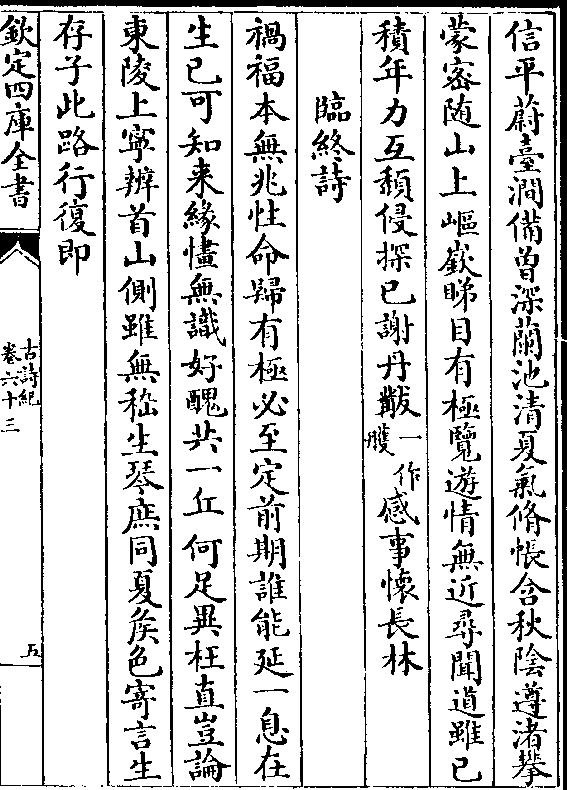 信平蔚臺澗備曽深蘭池清夏氣脩帳含秋陰遵渚攀
蒙密随山上嶇嶔睇目有極覽遊情無近尋聞道雖已
積年力互頹侵探已謝丹黻一作雘感事懐長林
臨終詩
禍福本無兆性命歸有極必至定前期誰能延一息在
生已可知来緣㦎無識好醜共一丘何足異枉直豈論
東陵上寧辨首山側雖無嵇生琴庶同夏侯色寄言生
存子此路行復即
欽定四庫全書
古詩紀
卷六十三
五